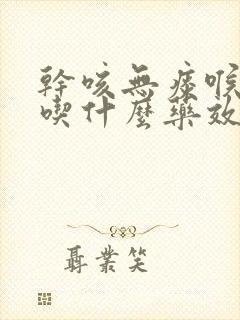 幹咳無痰喉
喫什麼藥效
聶業笑